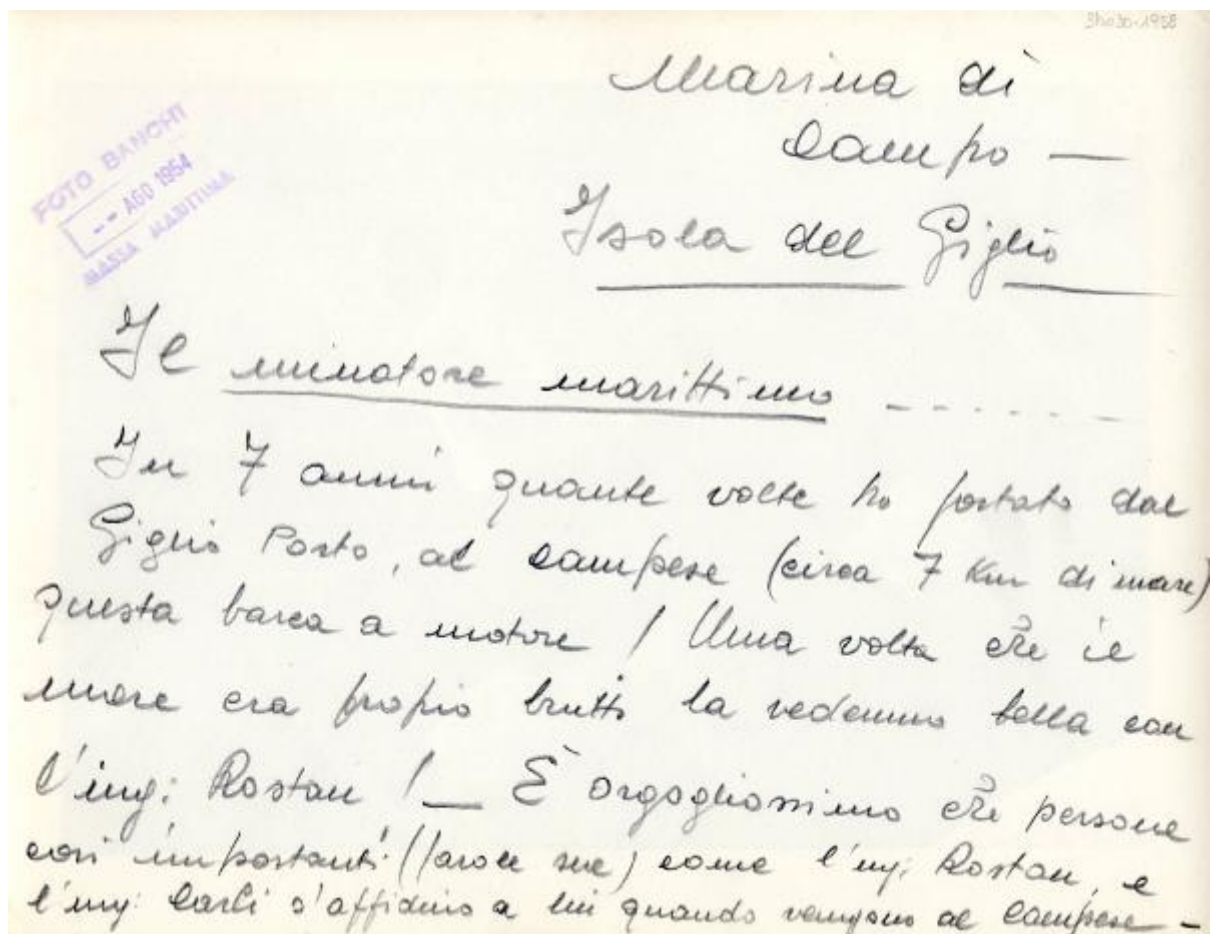 Marina di
Campo —
Isola del Giglio
FOTO BANCHI
-- AGO 1954
MASSA MARITTIMA
Il minatore marittimo ------
In 7 anni quante volte ho portato dal
Giglio Porto, al Campese (circa 7 Km di mare)
questa barca a motore! Una volta che il
mare era propio brutto la vedemmo bella con
l'ing: Rostan! — È orgogliossimo che persone
così importanti (parole sue) come l'ing: Rostan, e
l'ing: Carli s'affidino a lui quando vengono al Campese -